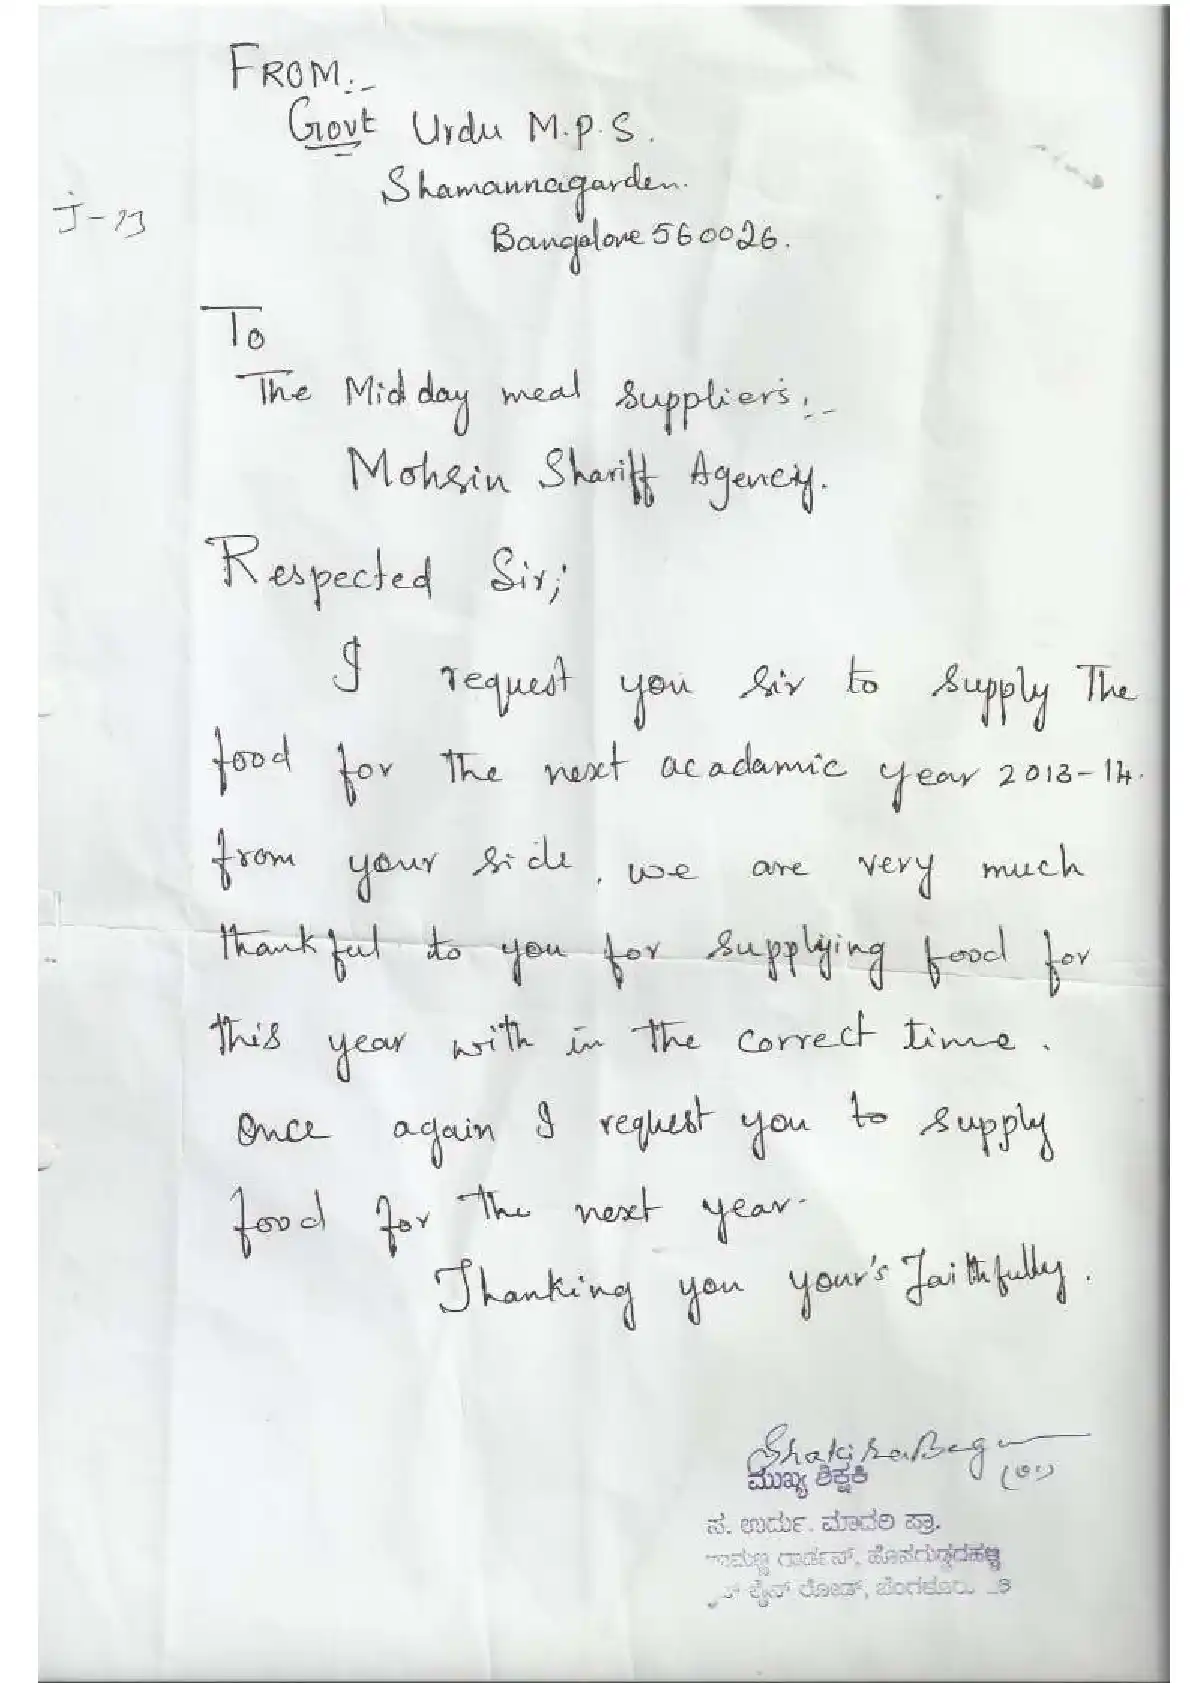 FROM:-
Govt Urdu M.P.S.
Shamannagarden.
J-13
Bangalore 560026.
To
The Midday meal suppliers:-
Mohsin Shariff Agency.
Respected Sir;
I request you sir to supply The
food for the next acadamic year 2013-14.
from your side. we are very much
thankful to you for supplying food for
this year with in the correct time.
Once again I request you to supply
food for the next year.
Thanking you your's Faithfully.
Shakira Beg
ಮುಖ್ಯ ಶಿಕ್ಷಕಿ
ಸ. ಉರ್ದು. ಮಾದರಿ ಪ್ರಾ.
ಗಾರ್ಡನ್, ಹೊಸಗುಡ್ಡದಹಳ್ಳಿ
ರೋಡ್, ಬೆಂಗಳೂರು